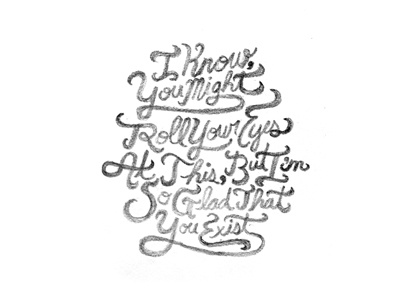 I Know,
You Might
Roll Your Eyes
At This, But I'm
So Glad That
You Exist